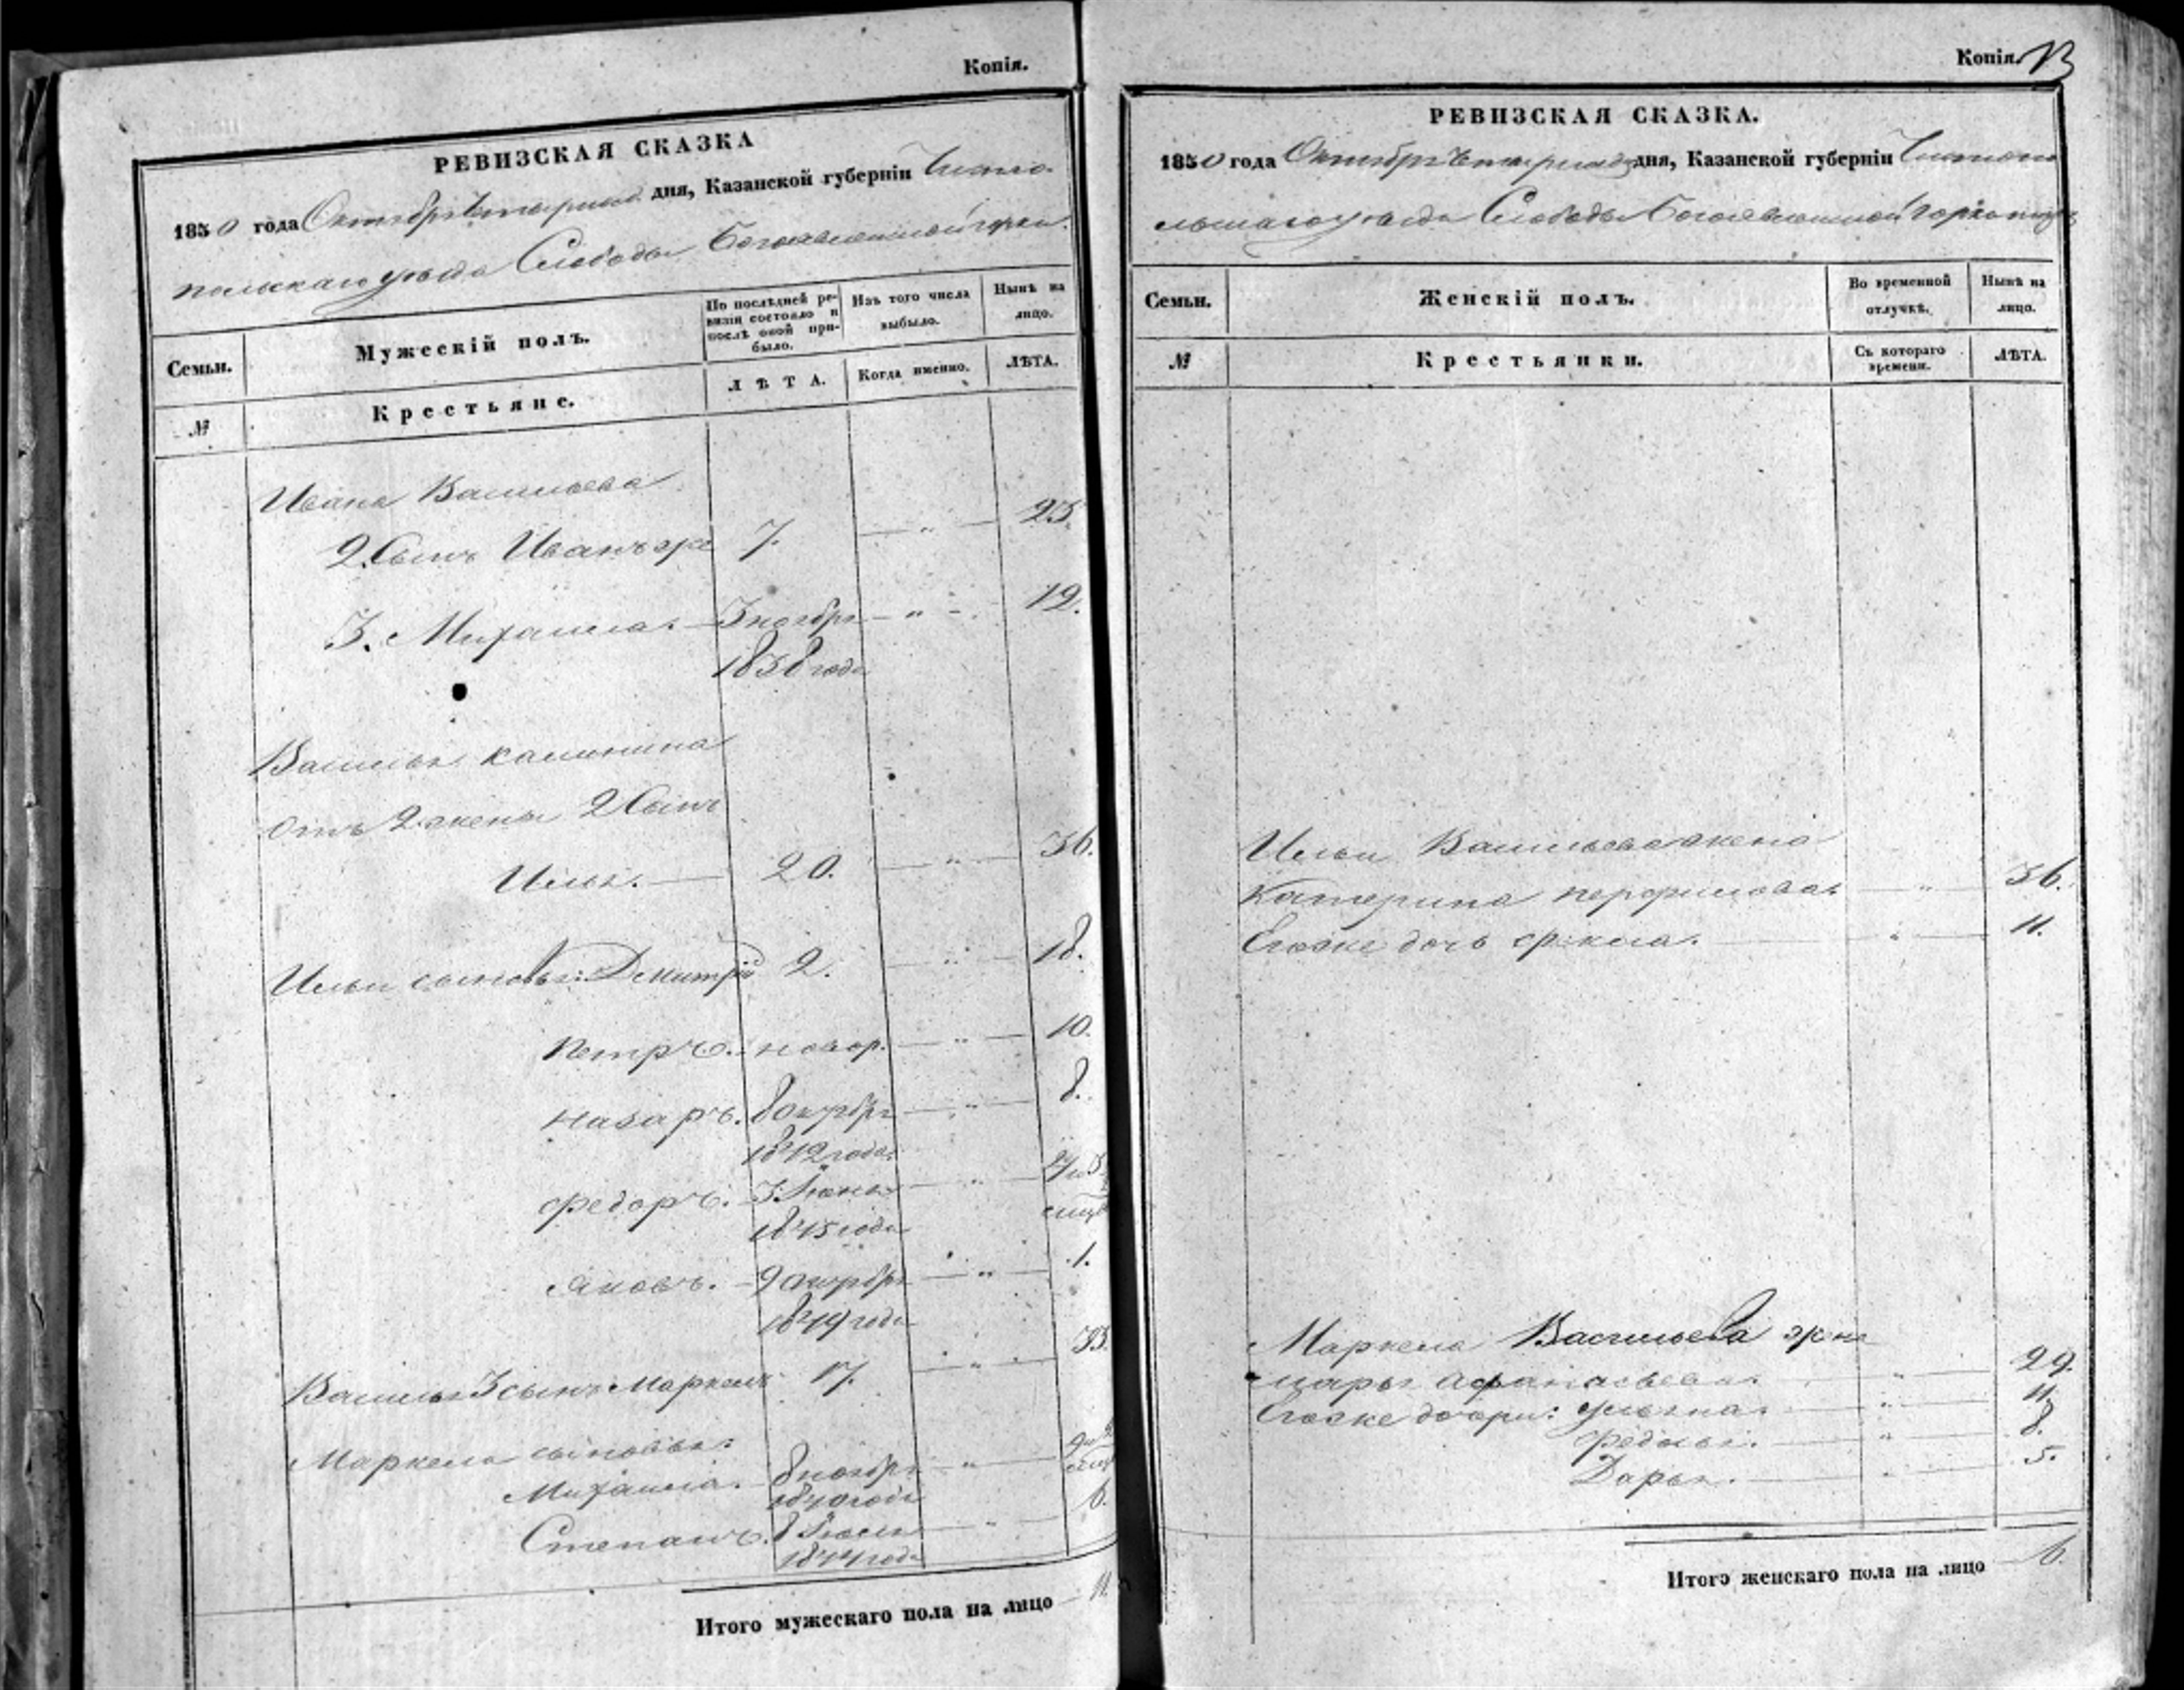 Копія.
РЕВИЗСКАЯ СКАЗКА
1850 года Октября дня, Казанской губерніи Чисто
польскаго уѣзда Слободы Богоявленской горки
Семьи.
Мужескій полъ.
По послѣдней ре-
визіи состояло и
послѣ оной при-
было.
Изъ того числа
выбыло.
Нынѣ на
лицо.
№
Крестьяне.
ЛѢТА.
Когда именно.
ЛѢТА.
Ивана Васильева
2. Сынъ Иванъ же 7. — „ — 25.
3. Михаила. 3 ноября — „ — 12.
1838 года
Василья Калинина
отъ 2 жены 2 Сынъ
Илья. — 20. — „ — 36.
Ильи сыновья: Дмитрій 2. — „ — 18.
Петръ. новор. — „ — 10.
Назаръ. 8 октября — „ — 8.
1842 года
Федоръ. 3 Іюня — „ —
1845 года
Яковъ. 9 октября — „ — 1.
1849 года
Василья 3 сынъ Маркелъ 17. — „ — 33.
Маркела сыновья:
Михаила. 8 ноября — „ —
1840 года
Степанъ. 8 Іюля — „ — 6.
1844 года
Итого мужескаго пола на лицо — 11.
Копія. 13
РЕВИЗСКАЯ СКАЗКА.
1850 года Октября дня, Казанской губерніи Чистопо
льскаго уѣзда Слободы Богоявленской горки
Семьи.
Женскій полъ.
Во временной
отлучкѣ.
Нынѣ на
лицо.
№
Крестьянки.
Съ котораго
времени.
ЛѢТА.
Ильи Васильева жена
Катерина Перфилова — „ — 36.
Его же дочь Фекла. — „ — 11.
Маркела Васильева жена
Марья Афанасьева. — „ — 29.
Его же дочери: Ульяна. — „ — 11.
Федосья. — „ — 8.
Дарья. — „ — 5.
Итого женскаго пола на лицо — 6.